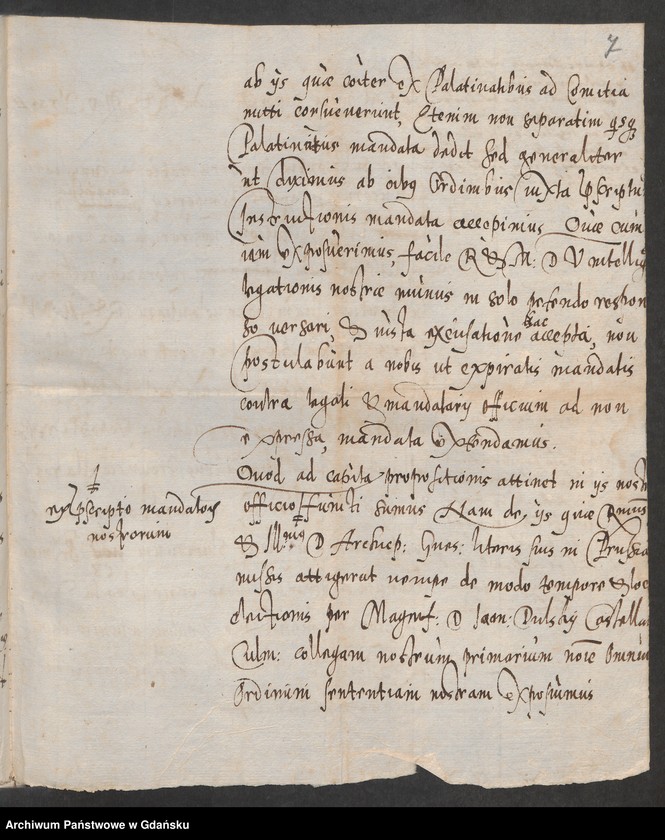 7
ab ijs quæ coiter ex Palatinatibus ad Comitia
mitti consueverunt, Etenim non separatim qsq
Palatinatus mandata dedit sed generaliter
ut diximus ab oibq Ordinibus iuxta pscriptu
Instructionis mandata accepimus. Quæ cum
iam exposuerimus, facile R & M: D V intellig
legationis nostræ munus in solo petendo respon
so versari, & iusta excusatione hac accepta, non
postulabunt a nobis ut expiratis mandatis
contra legati & mandatarij officium ad non
expressa, mandata extendamus.
Quod ad capita propositionis attinet in ijs nostr
officio functi sumus Nam de ijs quæ Rmus
& Illmus D Archiep: Gnes: literis suis in Prussia
missis attigerat nempe de modo tempore & loc
electionis per Magnif: D Joan: Dulsky Castellan
Culm: collegam nostrum primarium noie omniu
Ordinum sententiam nostram exposuimus
ex pscripto mandatorz
nostrorum
Archiwum Państwowe w Gdańsku